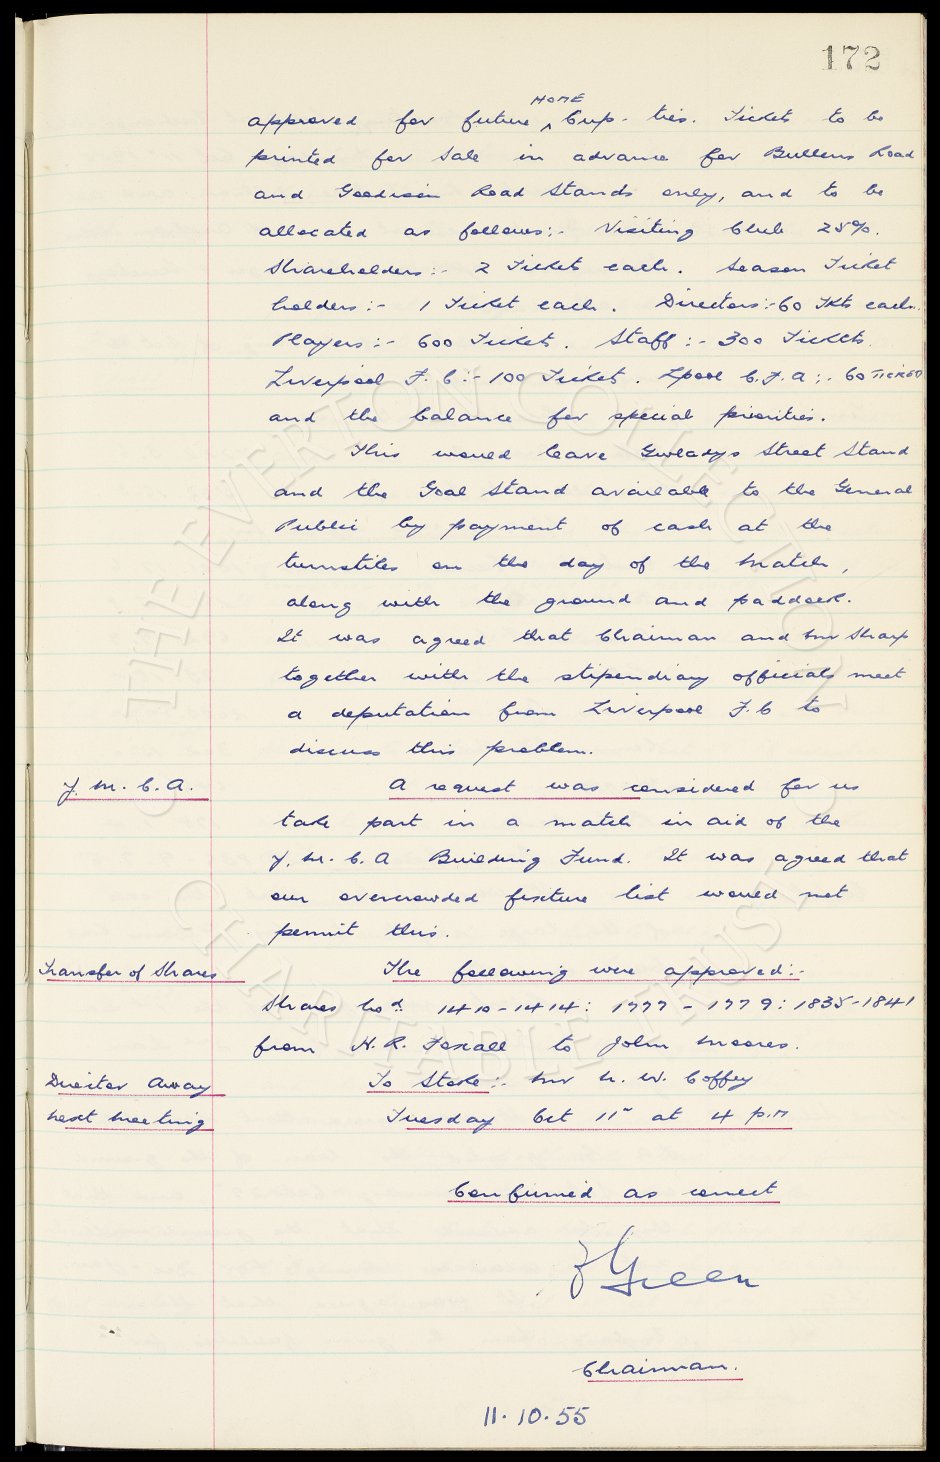 172
approved for future HOME Cup-ties. Tickets to be
printed for sale in advance for Bullens Road
and Goodison Road Stands only, and to be
allocated as follows:- Visiting Club 25%.
Shareholders:- 2 Tickets each. Season Ticket
holders:- 1 Ticket each. Directors:- 60 Tkts each.
Players:- 600 Tickets. Staff:- 300 Tickets.
Liverpool F.C:- 100 Ticket. Lpool C.F.A:- 60 TICKET
and the balance for special priorities.
This would leave Gwladys Street Stand
and the Goal Stand available to the General
Public by payment of cash at the
turnstiles on the day of the match,
along with the ground and paddock.
It was agreed that Chairman and Mr Sharp
together with the stipendiary officials meet
a deputation from Liverpool F.C to
discuss this problem.
Y.M.C.A. A request was considered for us
take part in a match in aid of the
Y.M.C.A Building Fund. It was agreed that
our overcrowded fixture list would not
permit this.
Transfer of Shares The following were approved:-
Shares Nod. 1410-1414: 1777-1779: 1835-1841
from H.R. Foxall to John Moores.
Director Away To Stoke:- Mr N. W. Coffey
Next Meeting Tuesday Oct 11" at 4 p.m
Confirmed as correct
F Green
Chairman.
11.10.55
THE EVERTON COLLECTION
CHARITABLE TRUST